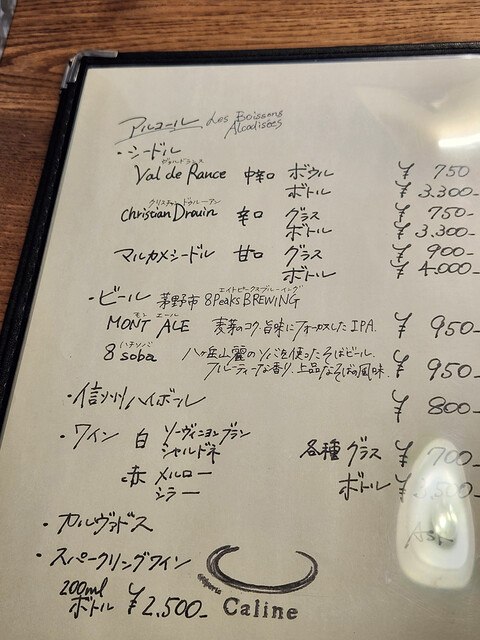 アルコール Les Boissons Alcoolisées
・シードル
ヴァルドランス
Val de Rance 中辛口 ボウル ¥ 750
ボトル ¥ 3.300-
クリスチャン ドゥルーアン
Christian Drouin 辛口 グラス ¥ 750-
ボトル ¥ 3.300-
マルカメシードル 甘口 グラス ¥ 900-
ボトル ¥ 4.000-
・ビール 茅野市 8Peaks BREWING
エイトピークスブルーイング
モン エール
MONT ALE 麦芽のコク・旨味にフォーカスしたIPA. ¥ 950-
ハチソバ
8 soba 八ヶ岳山麓のソバを使ったそばビール. ¥ 950-
フルーティーな香り、上品なそばの風味.
・信州ハイボール ¥ 800-
・ワイン 白 ソーヴィニヨンブラン
シャルドネ 各種 グラス ¥ 700-
赤 メルロー ボトル ¥ 3,500-
シラー
・カルヴァドス ASK
・スパークリングワイン
200ml
ボトル ¥2.500-
crêperie
Caline